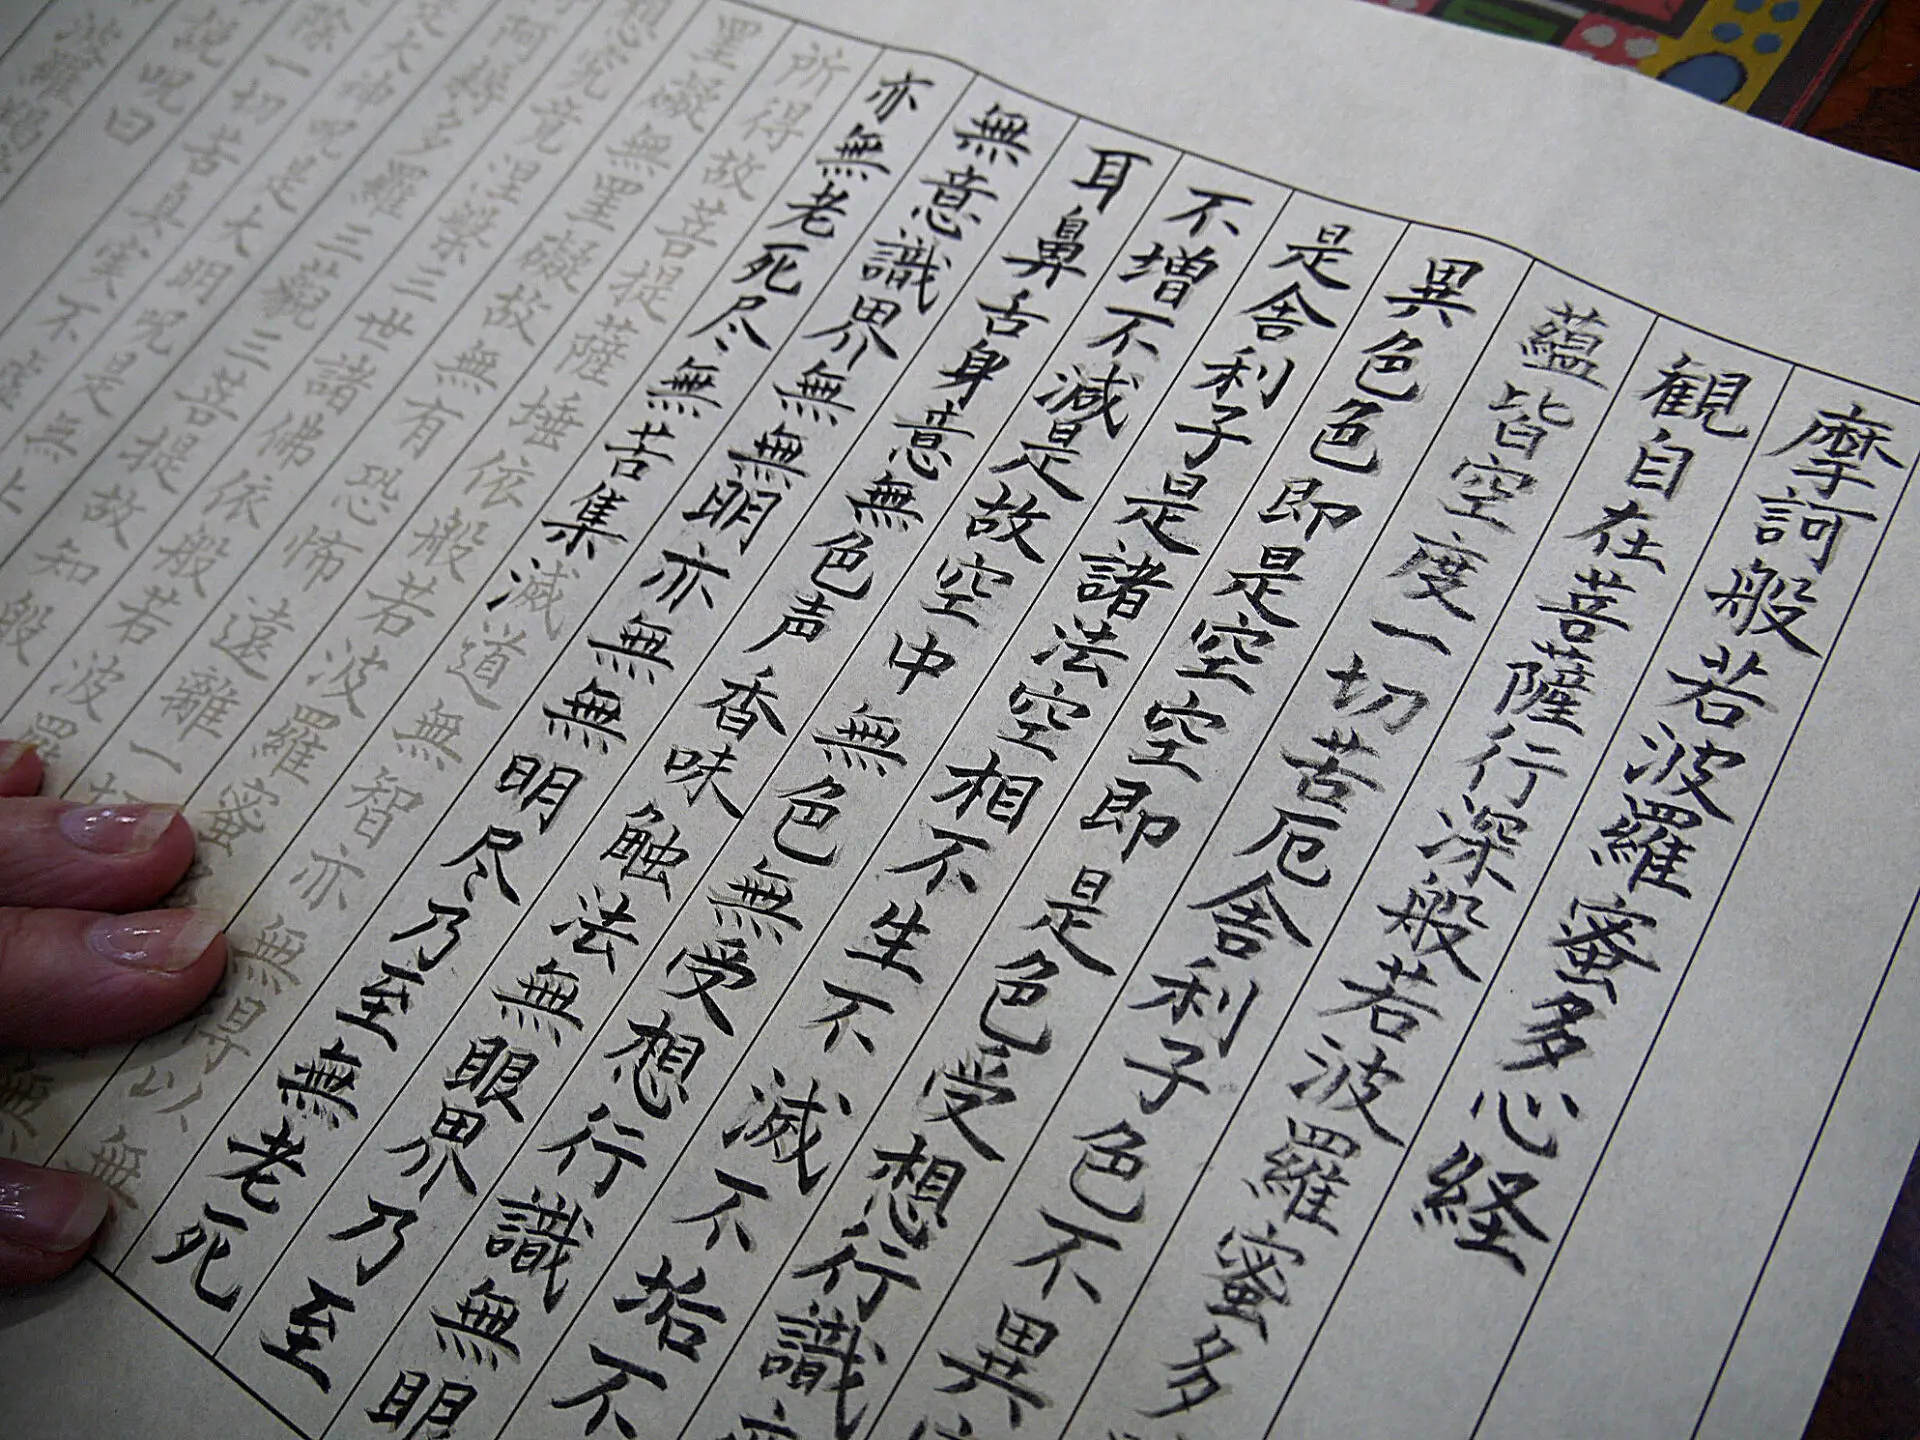 摩訶般若波羅蜜多心経
観自在菩薩行深般若波羅蜜多
蘊皆空度一切苦厄舎利子色不異
異色色即是空空即是色受想行識
是舎利子是諸法空相不生不滅不垢不
不増不減是故空中無色無受想行識無眼
耳鼻舌身意無色声香味触法無眼界乃至
無意識界無無明亦無無明尽乃至無老死
亦無老死尽無苦集滅道無智亦無得以無
所得故菩提薩埵依般若波羅蜜
罣礙無罣礙故無有恐怖遠離一切
想究竟涅槃三世諸佛依般若波羅
阿耨多羅三藐三菩提故知般
大神呪是大明呪是無上
除一切苦真実不虚
説呪曰
波羅羯